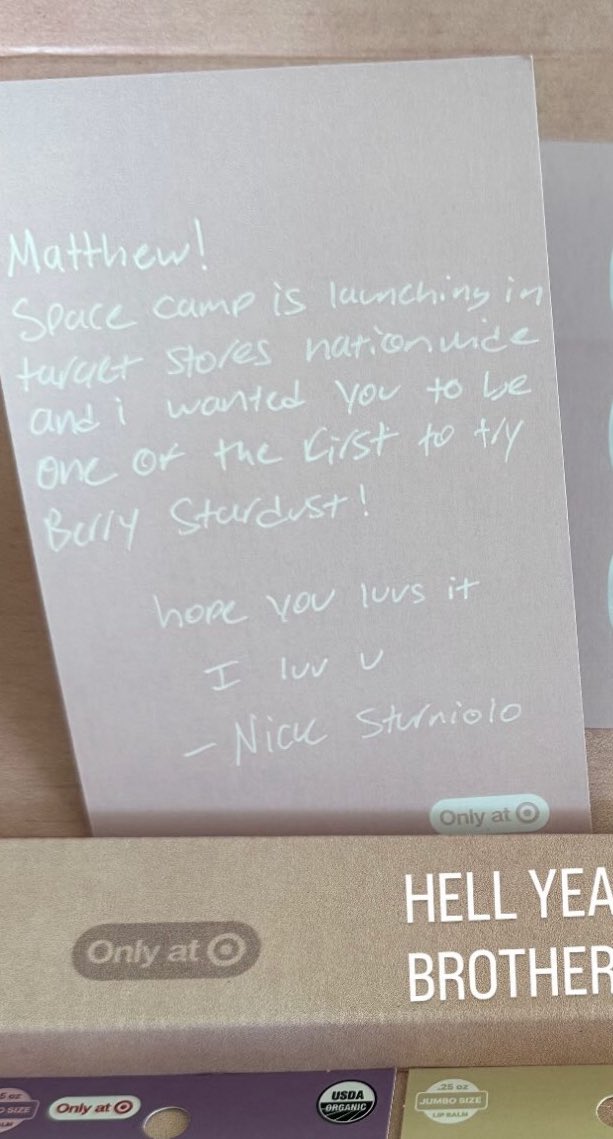 Matthew!
Space camp is launching in
target stores nationwide
and i wanted you to be
one of the first to try
Berry Stardust!
hope you luvs it
I luv u
- Nick Sturniolo
Only at
Only at
HELL YEA
BROTHER
5 oz
O SIZE
Only at
USDA
ORGANIC
.25 oz
JUMBO SIZE
LIP BALM